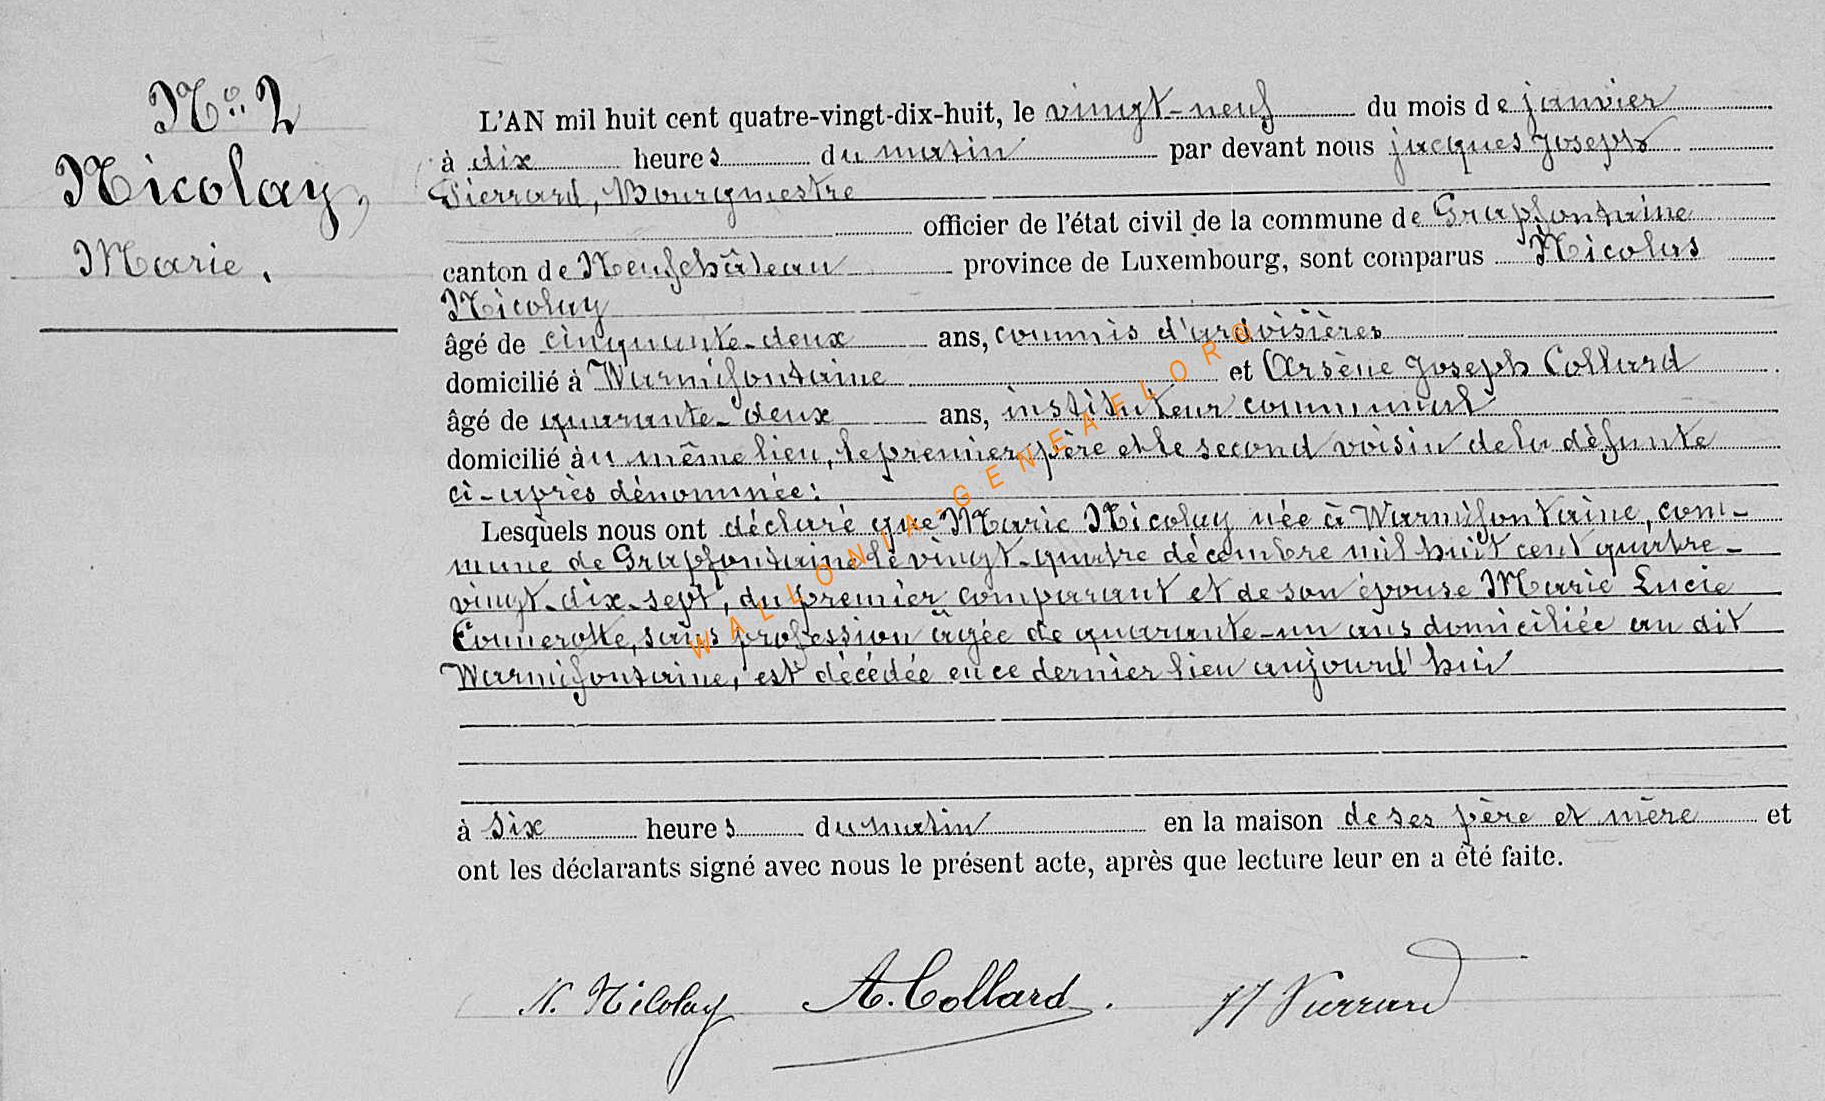 N° 2
Nicolay,
Marie.
L'AN mil huit cent quatre-vingt-dix-huit, le vingt-neuf du mois de janvier
à dix heures du matin par devant nous jacques Joseph
Pierrard, Bourgmestre
officier de l'état civil de la commune de Grapfontaine
canton de Neufchâteau province de Luxembourg, sont comparus Nicolas
Nicolay
âgé de cinquante-deux ans, commis d'ardoisières
domicilié à Warmifontaine et Arsène Joseph Collard
âgé de quarante-deux ans, instituteur communal
domicilié au même lieu, le premier père et le second voisin de la défunte
ci-après dénommée:
Lesquels nous ont déclaré que Marie Nicolay née à Warmifontaine, com-
mune de Grapfontaine le vingt-quatre décembre mil huit cent quatre-
vingt-dix-sept, du premier comparant et de son épouse Marie Lucie
Comerotte, sans profession âgée de quarante-un ans domiciliée au dit
Warmifontaine, est décédée en ce dernier lieu aujourd'hui
à six heures du matin en la maison de ses père et mère et
ont les déclarants signé avec nous le présent acte, après que lecture leur en a été faite.
N. Nicolay A. Collard. JJ Pierrard
WALLONIA-GENEAELORO